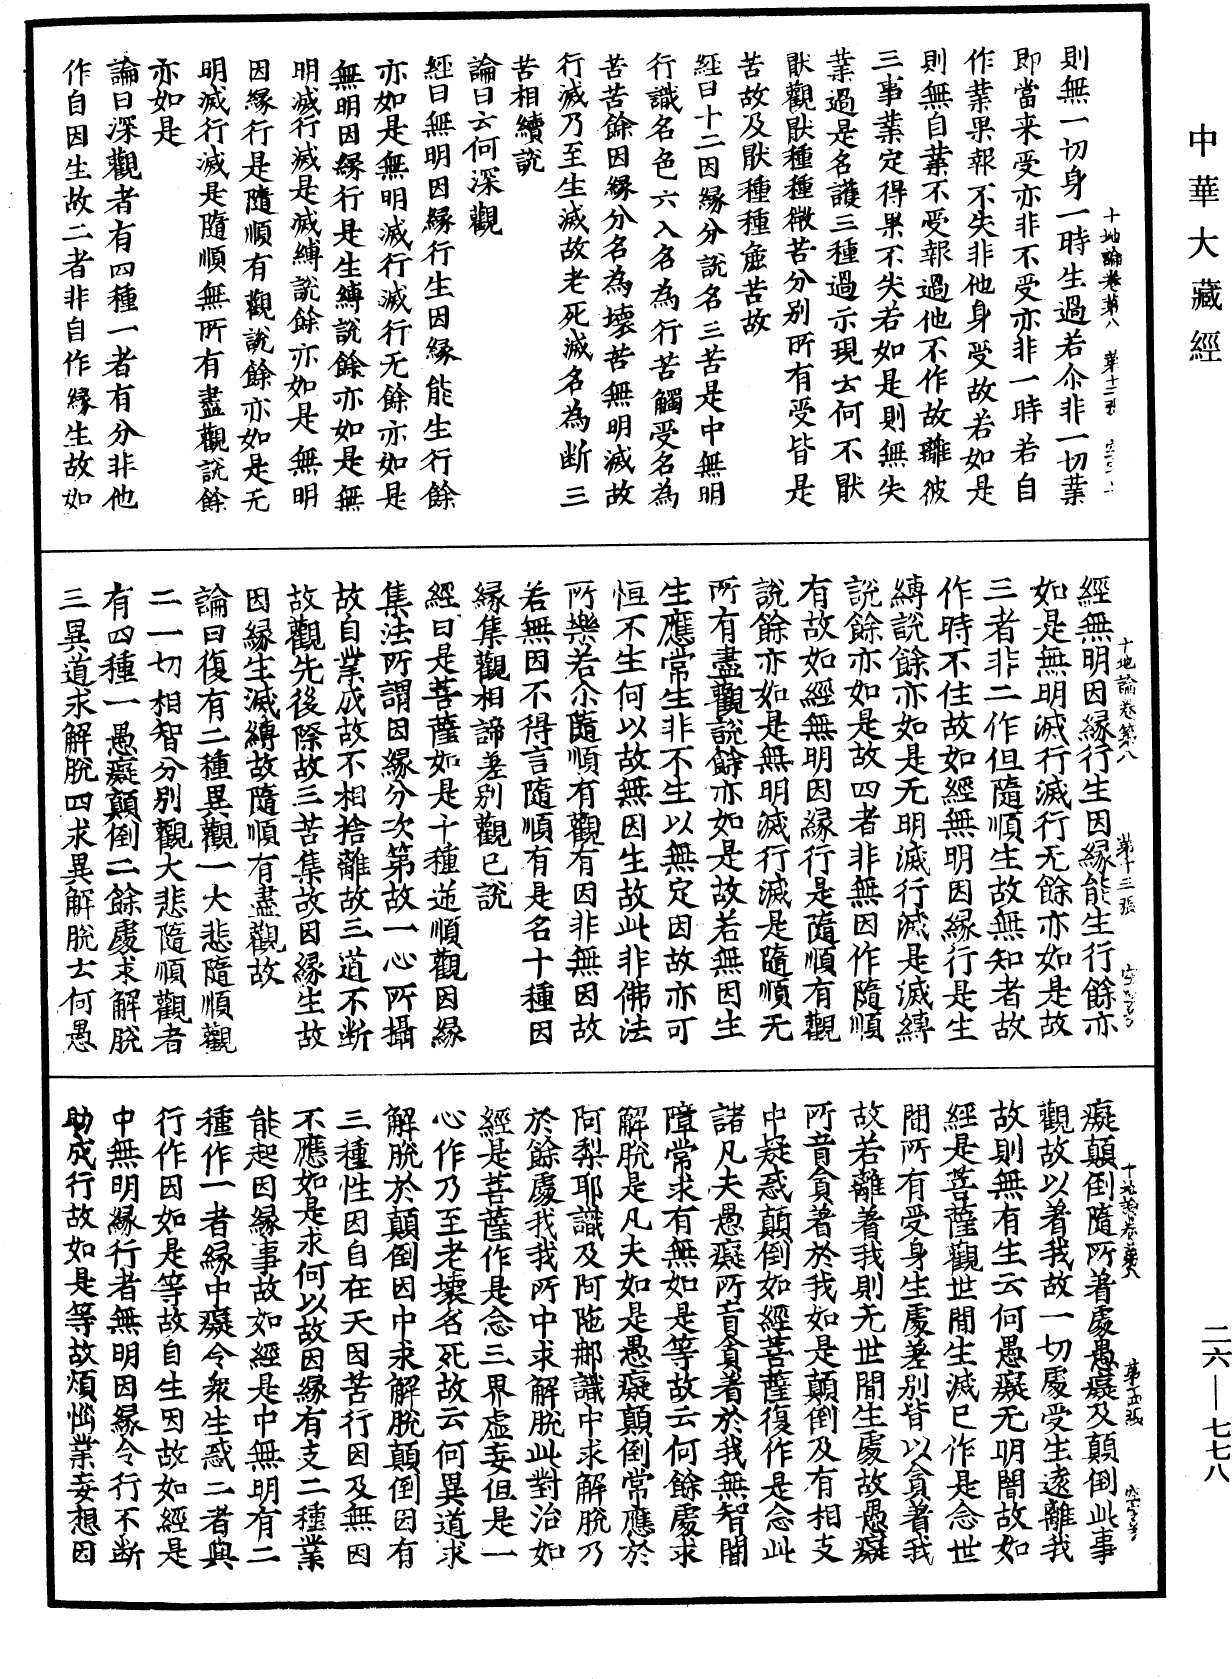 中華大藏經
十地論卷第八 第十二張
則無一切身一時生過若尒非一切業
即當来受亦非不受亦非一時若自
作業果報不失非他身受故若如是
則無自業不受報過他不作故離彼
三事業定得果不失若如是則無失
業過是名護三種過示現云何不猒
猒觀猒種種微苦分別所有受皆是
苦故及猒種種麁苦故
經曰十二因緣分說名三苦是中無明
行識名色六入名為行苦觸受名為
苦苦餘因緣分名為壞苦無明滅故
行滅乃至生滅故老死滅名為断三
苦相續說
論曰云何深觀
經曰無明因緣行生因緣能生行餘
亦如是無明滅行滅行无餘亦如是
無明因緣行是生縛說餘亦如是無
明滅行滅是滅縛說餘亦如是無明
因緣行是隨順有觀說餘亦如是无
明滅行滅是隨順無所有盡觀說餘
亦如是
論曰深觀者有四種一者有分非他
作自因生故二者非自作緣生故如
十地論卷第八 第十三張
經無明因緣行生因緣能生行餘亦
如是無明滅行滅行无餘亦如是故
三者非二作但隨順生故無知者故
作時不住故如經無明因緣行是生
縛說餘亦如是无明滅行滅是滅縛
說餘亦如是故四者非無因作隨順
有故如經無明因緣行是隨順有觀
說餘亦如是無明滅行滅是隨順无
所有盡觀說餘亦如是故若無因生
生應常生非不生以無定因故亦可
恒不生何以故無因生故此非佛法
所樂若尒隨順有觀有因非無因故
若無因不得言隨順有是名十種因
緣集觀相諦差別觀已說
經曰是菩薩如是十種逆順觀因緣
集法所謂因緣分次第故一心所攝
故自業成故不相捨離故三道不断
故觀先後際故三苦集故因緣生故
因緣生滅縛故隨順有盡觀故
論曰復有二種異觀一大悲隨順觀
二一切相智分別觀大悲隨順觀者
有四種一愚癡顛倒二餘處求解脫
三異道求解脫四求異解脫云何愚
十地論卷第八 第十四張
癡顛倒隨所著處愚癡及顛倒此事
觀故以著我故一切處受生遠離我
故則無有生云何愚癡无明闇故如
經是菩薩觀世間生滅已作是念世
間所有受身生處差別皆以貪著我
故若離著我則无世間生處故愚癡
所盲貪著於我如是顛倒及有相支
中疑惑顛倒如經菩薩復作是念此
諸凡夫愚癡所盲貪著於我無智闇
障常求有無如是等故云何餘處求
解脫是凡夫如是愚癡顛倒常應於
阿梨耶識及阿陁那識中求解脫乃
於餘處我我所中求解脫此對治如
經是菩薩作是念三界虛妄但是一
心作乃至老壞名死故云何異道求
解脫於顛倒因中求解脫顛倒因有
三種性因自在天因苦行因及無因
不應如是求何以故因緣有支二種業
能起因緣事故如經是中無明有二
種作一者緣中癡令衆生惑二者與
行作因如是等故自生因故如經是
中無明緣行者無明因緣令行不断
助成行故如是等故煩惱業妄想因
二六—七七八